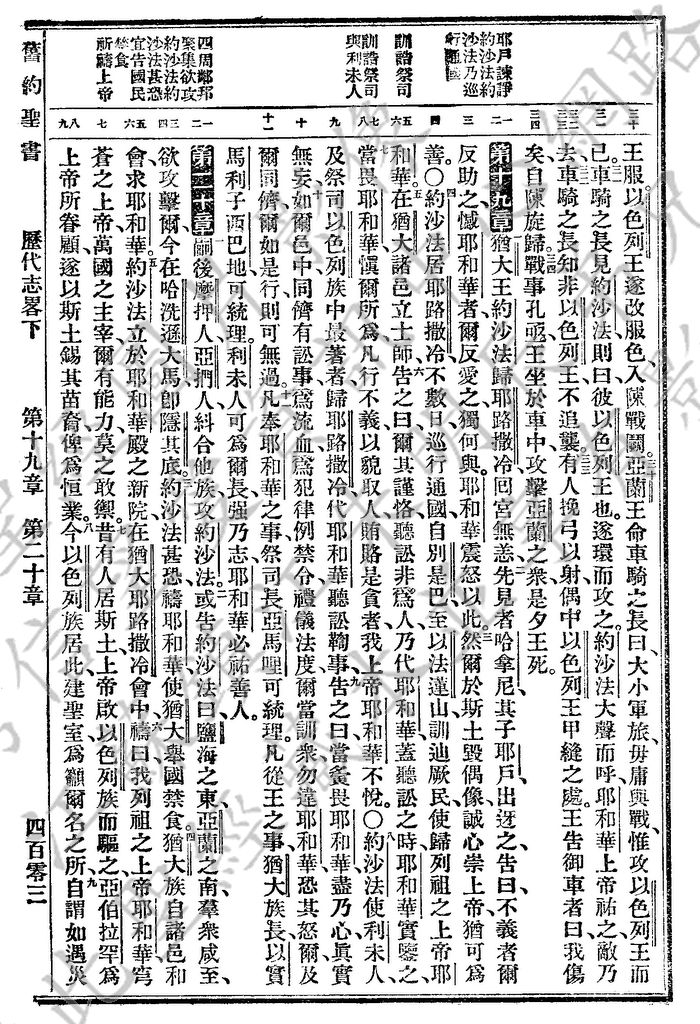 王服以色列王遂改服色入陳戰鬬亞蘭王命車騎之長曰大小軍旅毋庸與戰惟攻以色列王而
已車騎之長見約沙法則曰彼以色列王也遂環而攻之約沙法大聲而呼耶和華上帝祐之敵乃
去車騎之長知非以色列王不追襲有人挽弓以射偶中以色列王甲縫之處王告御車者曰我傷
矣自陳旋歸戰事孔亟王坐於車中攻擊亞蘭之衆是夕王死
第十九章猶大王約沙法歸耶路撒冷回宮無恙先見者哈拿尼其子耶戶出迓之告曰不義者爾
反助之憾耶和華者爾反愛之獨何與耶和華震怒以此然爾於斯土毀偶像誠心崇上帝猶可爲
善〇約沙法居耶路撒冷不數日巡行通國自別是巴至以法蓮山訓迪厥民使歸列祖之上帝耶
和華在猶大諸邑立士師告之曰爾其謹恪聽訟非爲人乃代耶和華蓋聽訟之時耶和華實鑒之
當畏耶和華愼爾所爲凡行不義以貌取人賄賂是貪者我上帝耶和華不悅〇約沙法使利未人
及祭司以色列族中最著者歸耶路撒冷代耶和華聽訟鞫事告之曰當寅畏耶和華盡乃心眞實
無妄如爾邑中同儕有訟事爲流血爲犯律例禁令禮儀法度爾當訓衆勿違耶和華恐其怒爾及
爾同儕爾如是行則可無過凡奉耶和華之事祭司長亞馬哩可統理凡從王之事猶大族長以實
馬利子西巴地可統理利未人可爲爾長强乃志耶和華必祐善人
第二十章嗣後摩押人亞捫人糾合他族攻約沙法或告約沙法曰鹽海之東亞蘭之南羣衆咸至
欲攻擊爾今在哈洗遜大馬卽隱其底約沙法甚恐禱耶和華使猶大舉國禁食猶大族自諸邑和
會求耶和華約沙法立於耶和華殿之新院在猶大耶路撒冷會中禱曰我列祖之上帝耶和華穹
蒼之上帝萬國之主宰爾有能力莫之敢禦昔有人居斯土上帝啟以色列族而驅之亞伯拉罕爲
上帝所眷顧遂以斯土錫其苗裔俾爲恒業今以色列族居此建聖室爲籲爾名之所自謂如遇災
耶戶諫諍
約沙法約
沙法乃巡
行通國
訓誥祭司
訓誥祭司
與利未人
四周鄰邦
聚集欲攻
約沙法約
沙法甚恐
宜告國民
禁食
所禱上帝
舊約聖書 歷代志畧下 第十九章 第二十章 四百零三